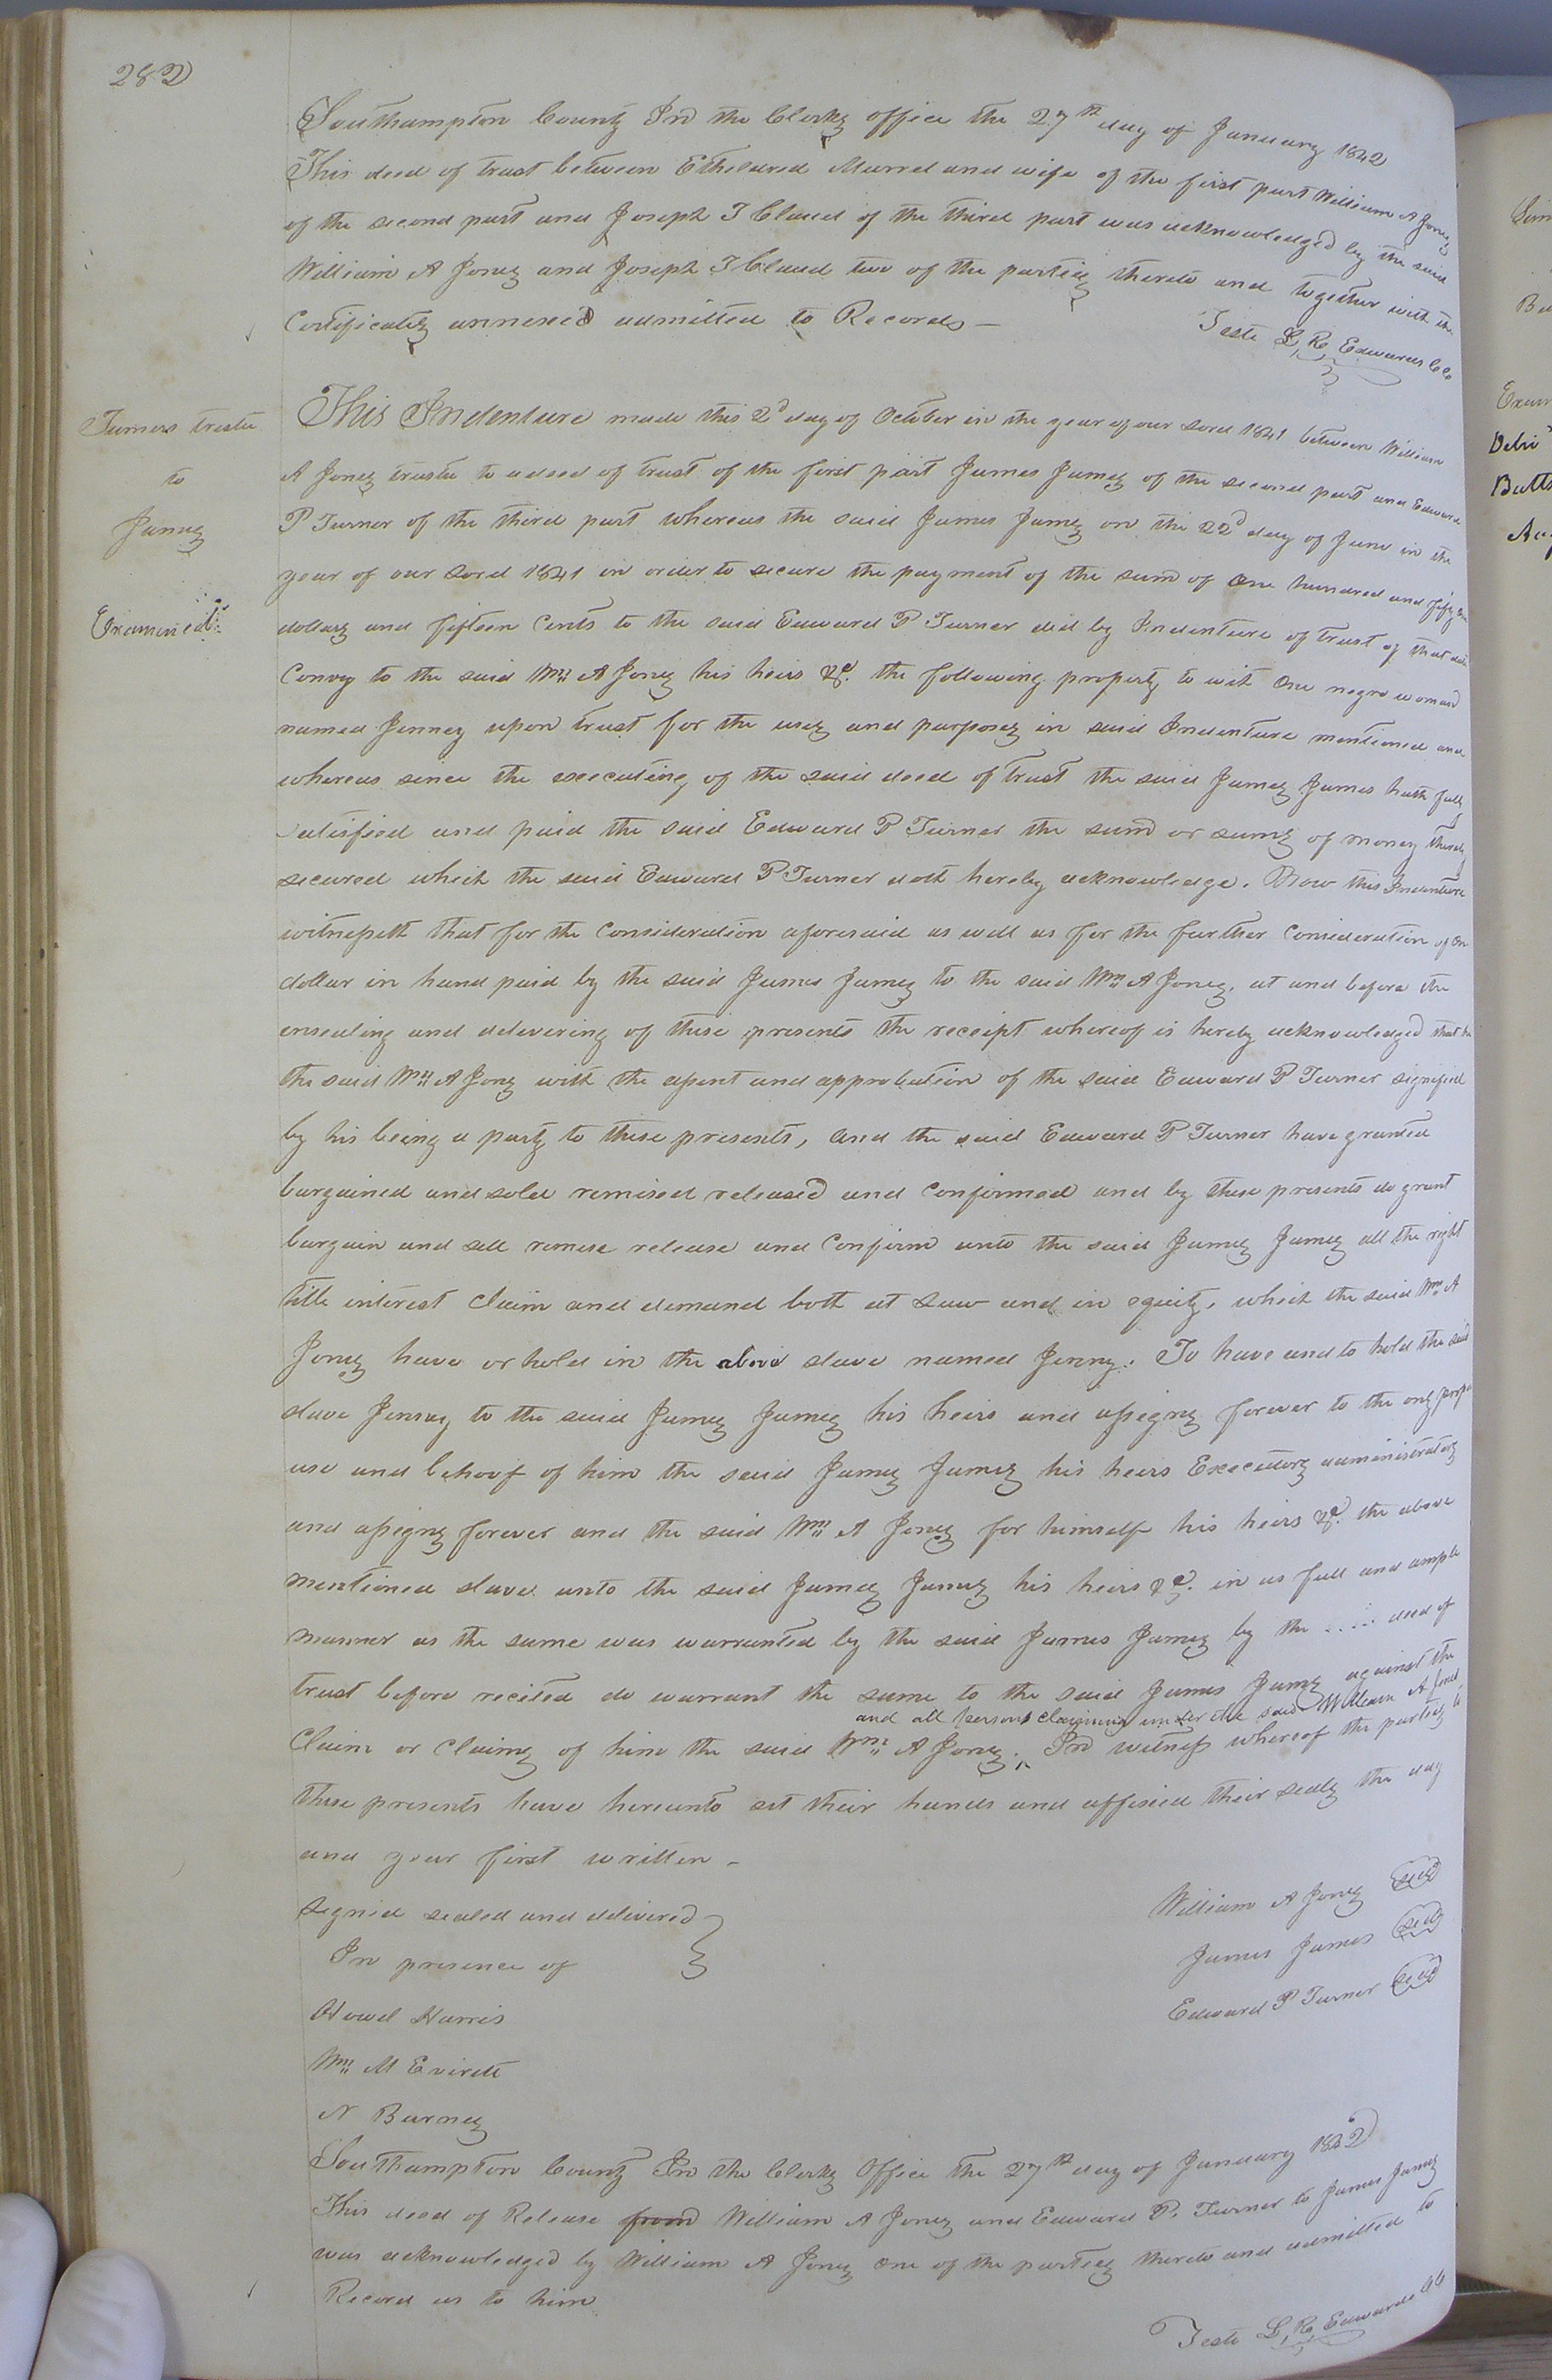 282
Southampton County In the Clerks office the 27th day of January 1842
This deed of trust between Etheldred Murrel and wife of the first part William A Jones
of the second part and Joseph T Claud of the third part was acknowledged by the said
William A Jones and Joseph T Claud two of the parties thereto and together with the
Certificates annexed admitted to Records —
Teste L, R, Edwards CC
Turners trustee
to
James
Examined
This Indenture made this 2d day of October in the year of our Lord 1841 between William
A Jones trustee to a deed of trust of the first part James James of the second part and Edward
P Turner of the third part whereas the said James James on the 22d day of June in the
year of our Lord 1841 in order to secure the payment of the sum of One hundred and fifty One
dollars and fifteen Cents to the said Edward P Turner did by Indenture of trust of that date
Convey to the said Wm A Jones his heirs &c. the following property to wit One negro woman
named Jenney upon trust for the uses and purposes in said Indenture mentioned and
whereas since the executing of the said deed of trust the said James James hath fully
satisfied and paid the said Edward P Turner the sum or sums of money thereby
secured which the said Edward P Turner doth hereby acknowledge. Now this Indenture
witnesseth that for the Consideration aforesaid as well as for the further Consideration of One
dollar in hand paid by the said James James to the said Wm A Jones, at and before the
ensealing and delivering of these presents the receipt whereof is hereby acknowledged that he
the said Wm A Jones with the assent and approbation of the said Edward P Turner signified
by his being a party to these presents, and the said Edward P Turner have granted
bargained and sold remised released and Confirmed and by these presents do grant
bargain and sell remise release and Confirm unto the said James James all the right
title interest Claim and demand both at Law and in equity, which the said Wm A
Jones have or hold in the above slave named Jenny. To have and to hold the said
slave Jenney to the said James James his heirs and assigns forever to the only proper
use and behoof of him the said James James his heirs Executors administrators
and assigns forever and the said Wm A Jones for himself his heirs &c. the above
mentioned slave unto the said James James his heirs &c. in as full and ample
manner as the same was warranted by the said James James by the ..... deed of
trust before recited do warrant the same to the said James James against the
and all persons claiming under the said William A Jones
Claim or Claims of him the said Wm A Jones. In witness whereof the parties to
these presents have hereunto set their hands and affixed their seals the day
and year first written —
Signed sealed and delivered
In presence of
Howel Harris
Wm M Everett
N Barnes
William A Jones seal
James James seal
Edward P Turner seal
Southampton County In the Clerks Office the 27th day of January 1842
This deed of Release from William A Jones and Edward P. Turner to James James
was acknowledged by William A Jones One of the parties thereto and admitted to
Record as to him
Teste L, R, Edwards CC